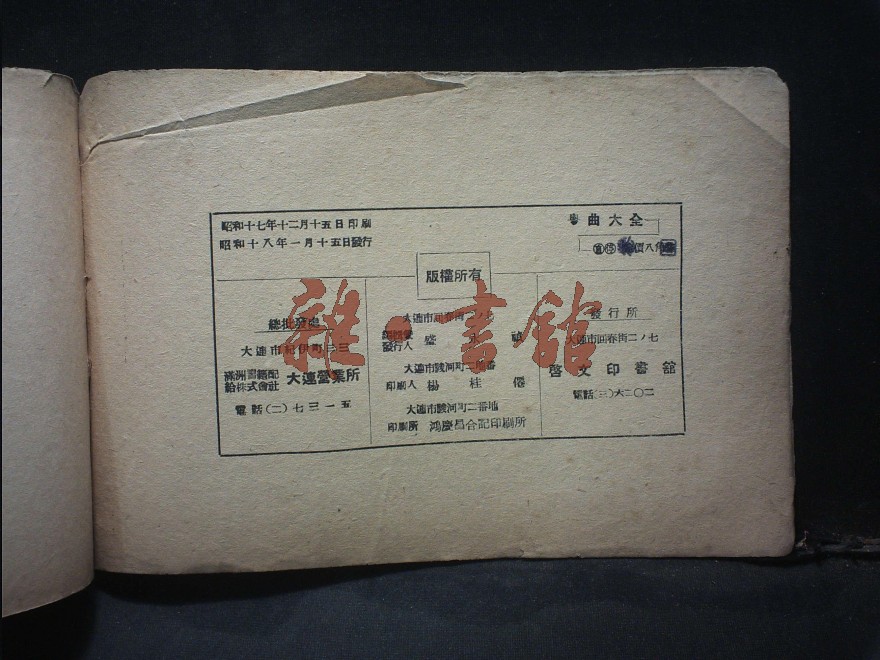 粵曲大全
價八角
昭和十七年十二月十五日印刷
昭和十八年一月十五日發行
版權所有
發行所
大連市回春街二ノ七
啓文印書舘
電話(三)六二〇二
大連市回春街二ノ七
發行人
大連市駿河町二番
印刷人 楊桂
大連市駿河町二番地
印刷所 鴻慶昌合記印刷所
總批發處
大連市紀伊町三三
滿洲書籍配給株式會社 大連營業所
電話(二)七三一五
雜·書館